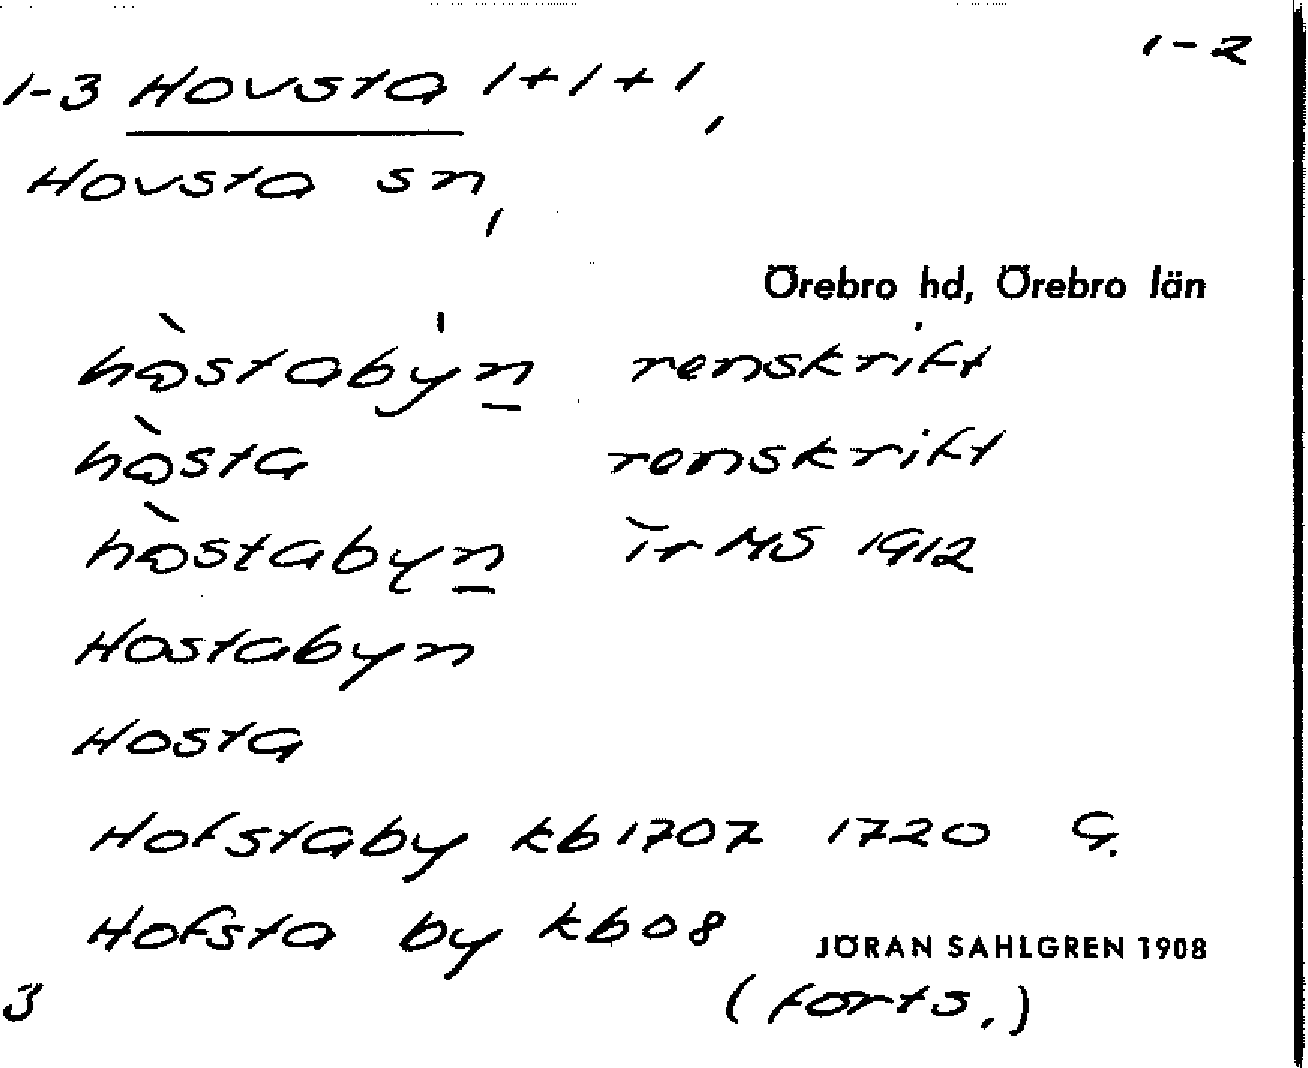 1-2
1-3 Hovsta 1+1+1,
Hovsta sn,
Örebro hd, Örebro län
hò̱stabýn̲ renskrift
hò̱sta renskrift
hò̱stabyn̲ ir MS 1912
Hostabyn
Hosta
Hofstaby kb 1707 1720 G.
Hofsta by kb 08
JÖRAN SAHLGREN 1908
3 (forts.)